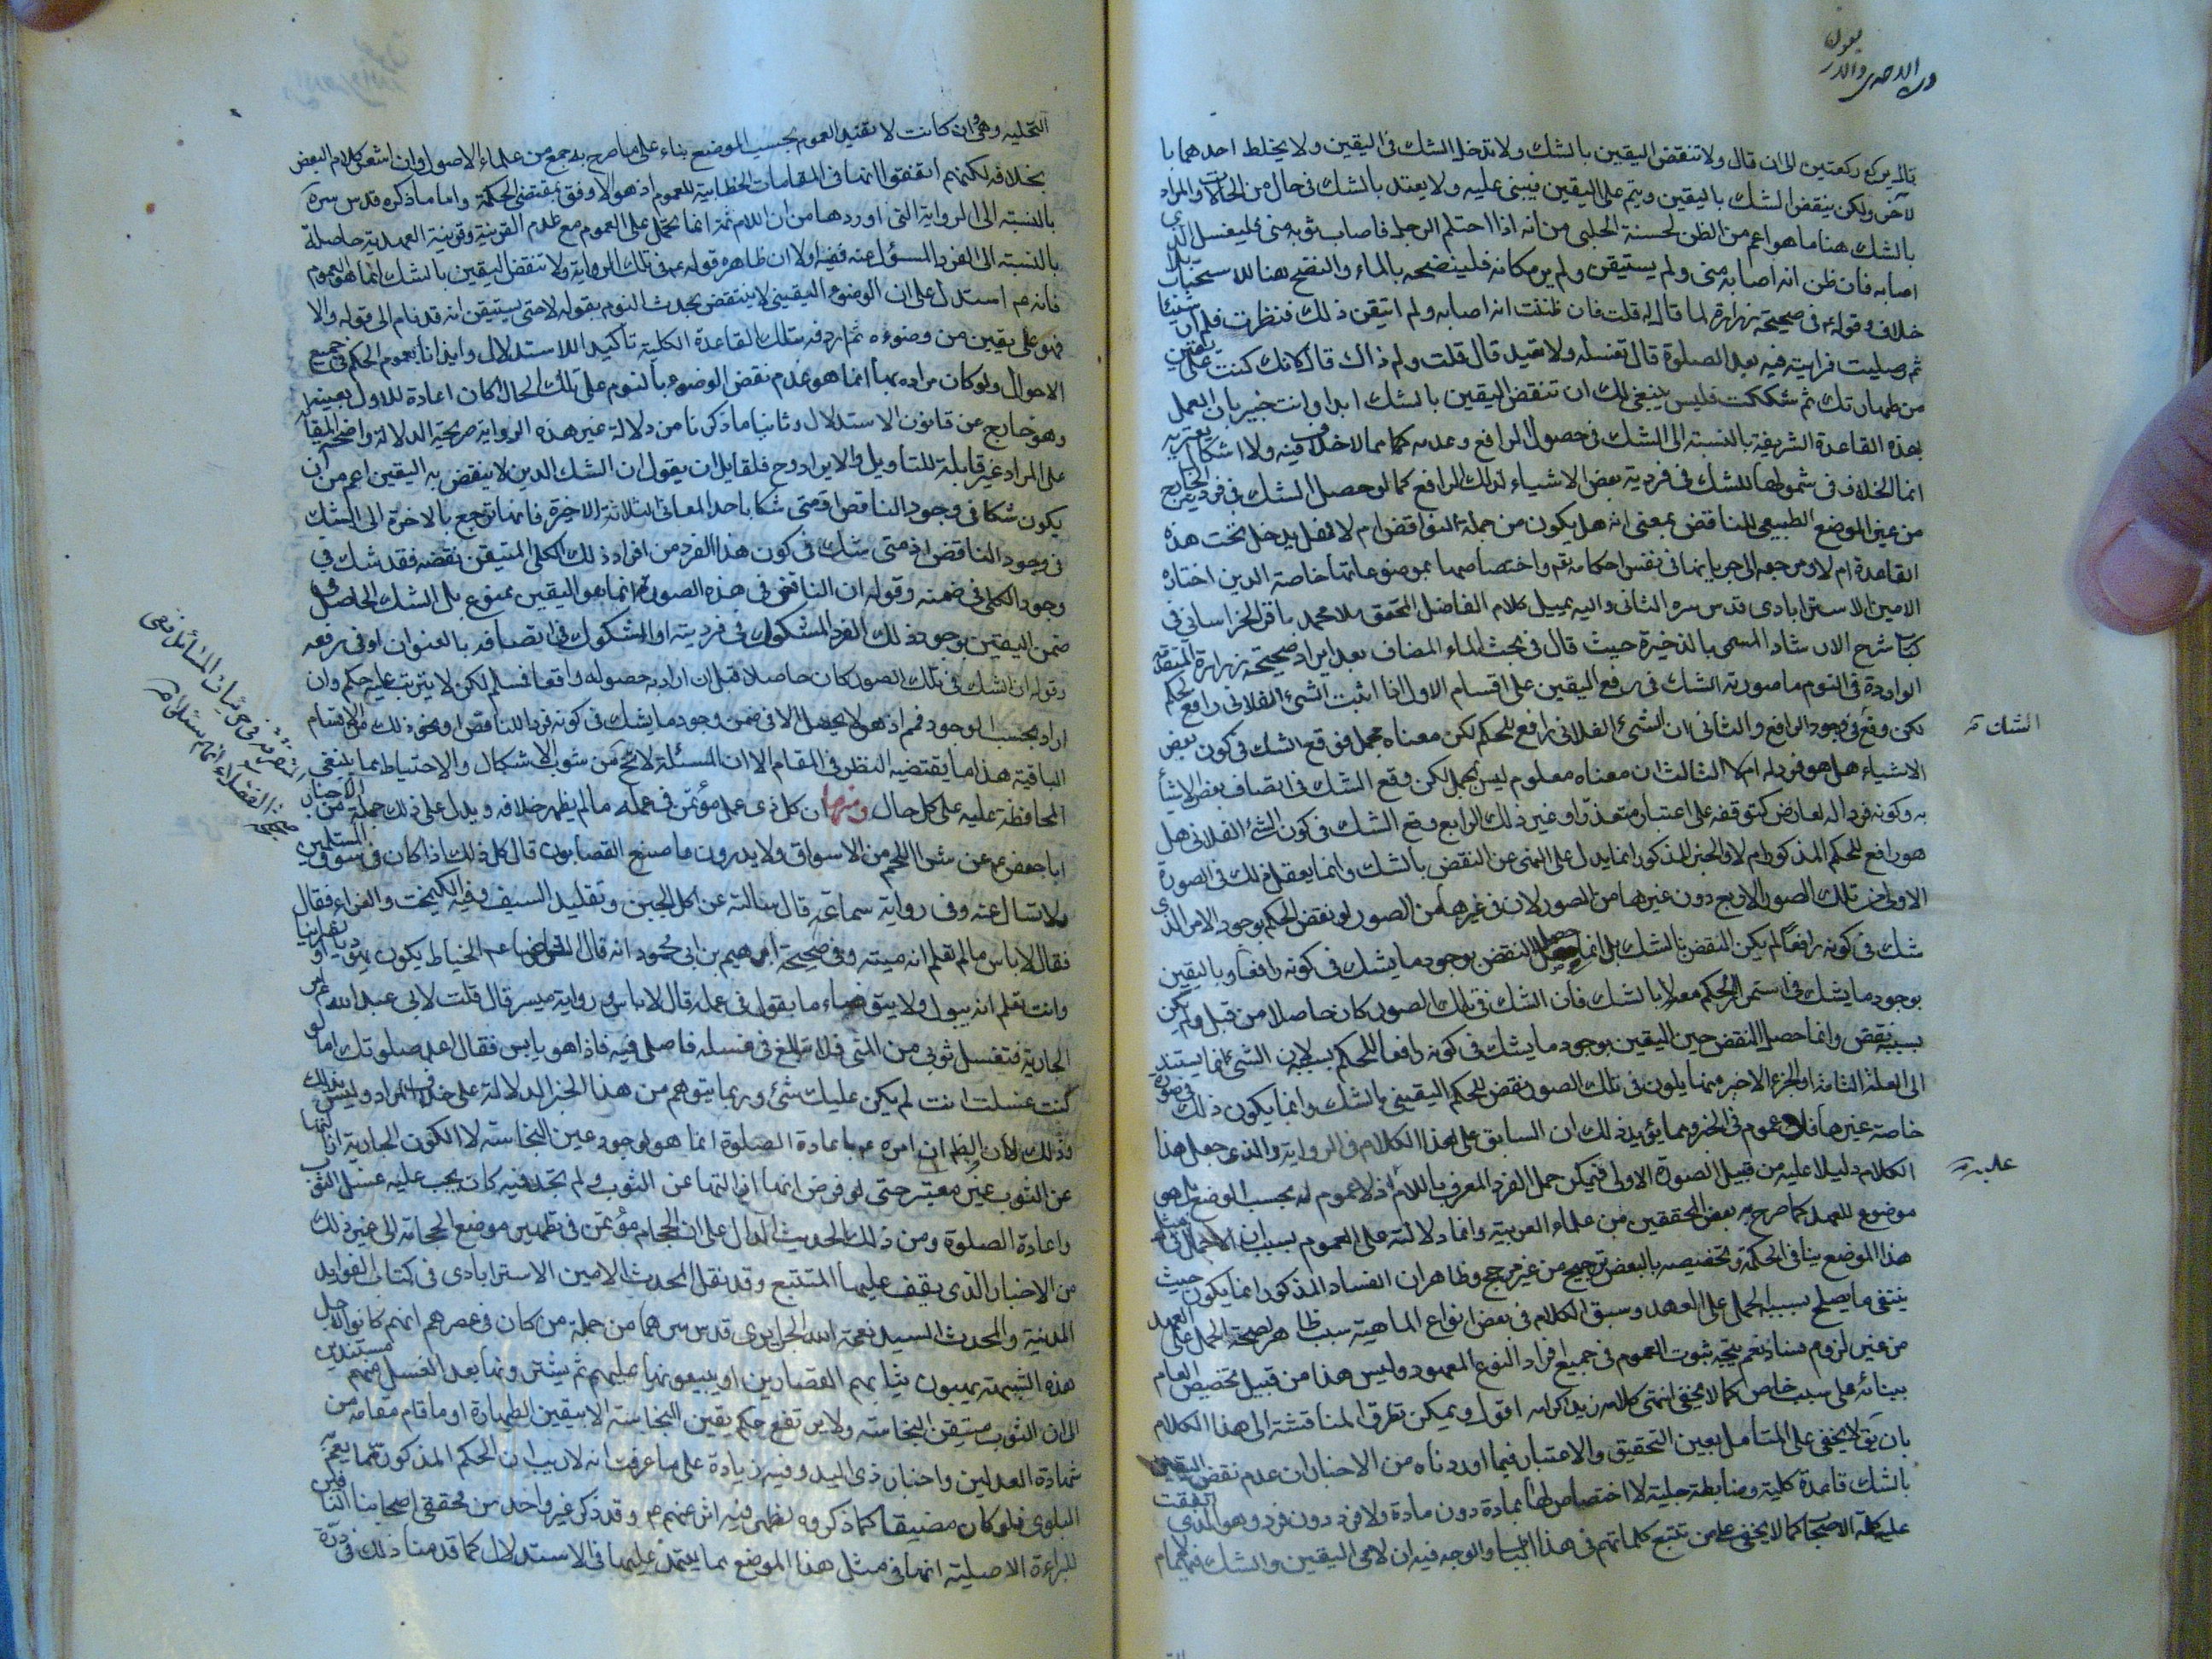 ولا تنقض اليقين بالشك ولا تدخل الشك في اليقين ولا يخلط احدهما با
لآخر ولكن ينقض الشك باليقين ويتم على اليقين فيبني عليه ولا يعتد بالشك في حال من الحالات والمراد
بالشك هنا ما هو اعم من الظن لحسنة الحلبي من انه اذا احتلم الرجل فاصاب ثوبه مني فليغسل الذي
اصابه فان ظن انه اصابه مني ولم يستيقن ولم ير مكانه فلينضحه بالماء والنضح هنا للاستحباب
خلاف وقوله في صحيحة زرارة لما قال له قلت فان ظننت انه اصابه ولم اتيقن ذلك فنظرت فلم ار شيئا
ثم صليت فرايته فيه بعد الصلوة قال تغسله ولا تعيد قال قلت ولم ذاك قال لانك كنت على يقين
من طهارتك ثم شككت فليس ينبغي لك ان تنقض اليقين بالشك ابدا وانت خبير بان العمل
بهذه القاعدة الشريفة بالنسبة الى الشك في حصول الرافع وعدمه مما لا خلاف فيه ولا اشكال يعتريه
انما الخلاف في شمولها للشك في فردية بعض الاشياء لذلك الرافع كما لو حصل الشك في فردية الخارج
من غير الموضع الطبيعي للناقض بمعنى انه هل يكون من جملة النواقض ام لا فهل يدخل تحت هذه
القاعدة ام لا ومرجعه الى جريانها في نفس احكامه تعم واختصاصها بموضوعاتها خاصة الذين اختاره
الامين الاسترابادي قدس سره الثاني واليه يميل كلام الفاضل المحقق ملا محمد باقر الخراساني في
كتاب شرح الارشاد المسمى بالذخيرة حيث قال في بحث الماء المضاف بعد ايراد صحيحة زرارة المتقدمة
الواردة في النوم ما صورته الشك في رفع اليقين على اقسام الاول اذا ثبت ان الشئ الفلاني رافع لحكم
لكن وقع في وجود الرافع والثاني ان الشئ الفلاني رافع للحكم لكن معناه مجمل فوقع الشك في كون بعض
الشك
الاشياء هل هو فرد له ام لا الثالث ان معناه معلوم ليس بمجمل لكن وقع الشك في اتصاف بعض الاشيا
به وكونه فردا له لعارض كتوقفه على اعتبار متعذر او غير ذلك الرابع وقع الشك في كون الشئ الفلاني هل
هو رافع للحكم المذكور ام لا والخبر المذكور انما يدل على النهي عن النقض بالشك وانما يعقل ذلك في الصورة
الاولى من تلك الصور الاربع دون غيرها من الصور لان في غيرها من الصور لو نقض الحكم بوجود الامر الذي
شك في كونه رافعا لم يكن النقض بالشك بل انما حصل النقض بوجود ما يشك في كونه رافعا وباليقين
بوجود ما يشك في استمرار الحكم معه لا بالشك فان الشك في تلك الصور كان حاصلا من قبل ولم يكن
بسببه نقض وانما حصل النقض حين اليقين بوجود ما يشك في كونه رافعا للحكم بسببه لان الشئ انما يستند
الى العلة التامة او الجزء الاخير منها فلا يكون في تلك الصور نقض للحكم اليقيني بالشك وانما يكون ذلك في صورة
خاصة غيرها فلا عموم في الخبر ومما يؤيد ذلك ان السابق على هذا الكلام في الرواية والذي جعل هذا
الكلام دليلا عليه من قبيل الصورة الاولى فيمكن حمل المفرد المعرف باللام اذ لا عموم له بحسب الوضع بل هو
عليه
موضوع للعهد كما صرح به بعض المحققين من علماء العربية وانما دلالته على العموم بسبب ان الاجمال في مثل
هذا الموضع ينافي الحكمة وتخصيصه بالبعض ترجيح من غير مرجح وظاهر ان الفساد المذكور انما يكون حيث
ينتفي ما يصلح بسببه الحمل على العهد وسبق الكلام في بعض انواع الماهية سبب ظاهر لصحة الحمل على العهد
من غير لزوم فساد نعم يتجه ثبوت العموم في جميع افراد النوع المعهود وليس هذا من قبيل تخصيص العام
ببنائه على سبب خاص كما لا يخفى انتهى كلامه زيد اكرامه اقول ويمكن تطرق المناقشة الى هذا الكلام
بان يق لا يخفى على المتامل بعين التحقيق والاعتبار فيما اوردناه من الاخبار ان عدم نقض اليقين
بالشك قاعدة كلية وضابطة جلية لا اختصاص لها بمادة دون مادة ولا فرد دون فرد وهو الذي اتفقت
عليه كلمة الاصحاب كما لا يخفى على من تتبع كلماتهم في هذا الباب والوجه فيه ان لامي اليقين والشك فيهما لام
التحليه وهي وان كانت لا تفيد العموم بحسب الوضع بناء على ما صرح به جمع من علماء الاصول وان اشعر كلام البعض
بخلافه لكنهم اتفقوا انها في المقامات الخطابية للعموم اذ هو الاوفق بمقتضى الحكمة واما ما ذكره قدس سره
بالنسبة الى الرواية التي اوردها من ان اللام ثمة انما تحمل على العموم مع عدم القرينة وقرينة العهدية حاصلة
بالنسبة الى الفرد المسؤل عنه ففيه اولا ان ظاهر قوله ع في تلك الرواية ولا تنقض اليقين بالشك انما هو العموم
فانه ع استدل على ان الوضوء اليقيني لا ينتقض بحدث النوم بقوله لا حتى يستيقن انه قد نام الى قوله والا
فهو على يقين من وضوءه ثم اردفه بتلك القاعدة الكلية تاكيدا للاستدلال وايذانا بعموم الحكم في جميع
الاحوال ولو كان مراده بها انما هو عدم نقض الوضوء بالنوم على تلك الحال لكان اعادة للاول بعينه
وهو خارج عن قانون الاستدلال وثانيا ما ذكرنا من دلالة غير هذه الرواية صريحة الدلالة واضحة المقالة
على المراد غير قابلة للتاويل والايراد وح فلقايل ان يقول ان الشك الذين لا ينقض به اليقين اعم من ان
يكون شكا في وجود الناقض او شكا باحد المعاني الثلاثة الاخيرة فانها ترجع بالاخرة الى الشك
في وجود الناقض اذ متى شك في كون هذا الفرد من افراد ذلك الكلي المتيقن نقضه فقد شك في
وجود الكلي في ضمنه وقوله ان الناقض في هذه الصورة انما هو اليقين ممنوع بل الشك الحاصل في
ضمن اليقين بوجود ذلك الفرد المشكوك في فرديته او المشكوك في اتصافه بالعنوان او في رفعه
وقوله ان الشك في تلك الصور كان حاصلا قبل ان اراد به حصوله واقعا فمسلم لكن لا يترتب عليه حكم وان
اراد بحسب الوجود فمم اذ هو لا يحصل الا في ضمن وجود ما يشك في كونه فردا للناقض او نحو ذلك من الاقسام
الباقية هذا ما يقتضيه النظر في المقام الا ان المسئلة لا تخ من شوب الاشكال والاحتياط مما ينبغي
المحافظة عليه على كل حال ومنها ان كل ذي عمل مؤتمن في عمله ما لم يظهر خلافه ويدل على ذلك جملة من الاخبار
ابا جعفر ع عن شرا اللحم من الاسواق ولا يدرون ما صنع القصابون قال كل ذلك اذا كان في سوق المسلمين
ولا تسال عنه وفي رواية سماعة قال سالته عن اكل الجبن وتقليد السيف وفيه الكيمخت والفراء فقال
فقال لا باس ما لم تعلم انه ميتة وفي صحيحة ابراهيم بن ابي محمود انه قال للرضا ع الخياط يكون يهوديا او نصرانيا
وانت تعلم انه يبول ولا يتوضاء ما تقول في عمله قال لا باس وفي رواية ميسر قال قلت لابي عبد الله ع امر
الجارية فتغسل ثوبي من المني فلا تبالغ في غسله فاصلى فيه فاذا هو يابس فقال اعد صلوتك اما لو
كنت غسلت انت لم يكن عليك شئ وربما يتوهم من هذا الخبر الدلالة على خلاف المراد وليس بذلك
وذلك لان الظم ان امره ع باعادة الصلوة انما هو لوجود عين النجاسة لا لكون الجارية
عن الثوب غير معتبر حتى لو فرض انها ازالتها عن الثوب ولم تجد فيه كان يجب عليه غسل الثوب
واعادة الصلوة ومن ذلك الحديث الدال على ان الحجام مؤتمن في تطهير موضع الحجامة الى غير ذلك
من الاخبار الذي يقف عليها المتتبع وقد نقل المحدث الامين الاسترابادي في كتاب الفوايد
المدنية والمحدث السيد نعمة الله الجزايري قدس سرهما من جملة من كان في عصرهم انهم كانوا لاجل
هذه الشبهة يهبون ثيابهم القصارين او يبيعونها عليهم ثم يشترونها بعد الغسل منهم مستندين
الى ان الثوب متيقن النجاسة ولا يرتفع حكم يقين النجاسة الا بيقين الطهارة او ما قام مقامه من
شهادة العدلين واخبار ذي اليد وفيه زيادة على ما عرفت انه لا ريب ان الحكم المذكور مما يعم به
البلوى فلو كان مضيقا كما ذكروه لظهر فيه اثر عنهم ع وقد ذكر غير واحد من محققي اصحابنا
للبراءة الاصلية انها في مثل هذا الموضع مما يعتمد عليها في الاستدلال كما قدمنا ذلك في درة